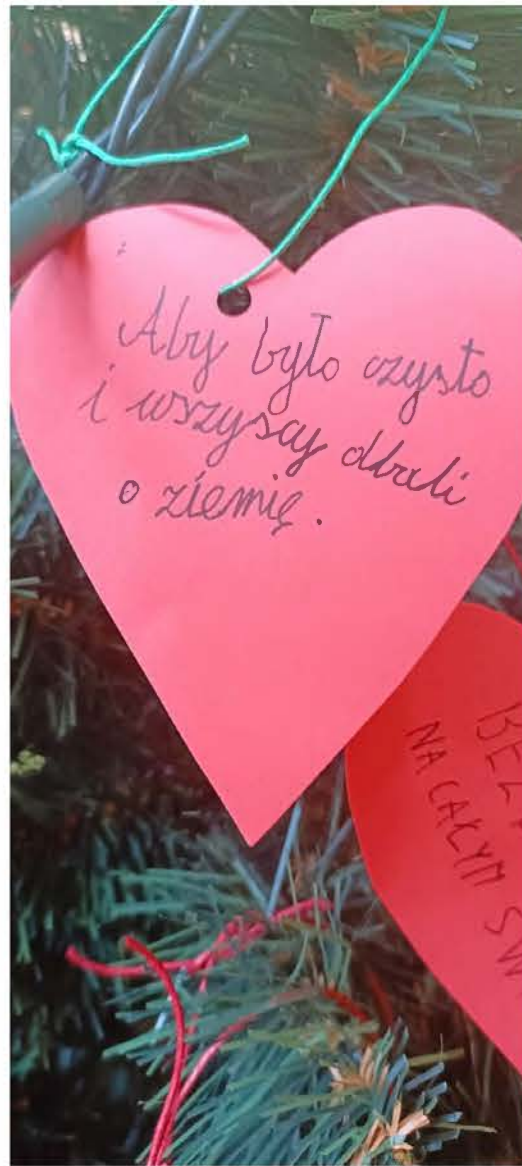 Aby było czysto
i wszyscy dbali
o ziemię.
NA CAŁYM